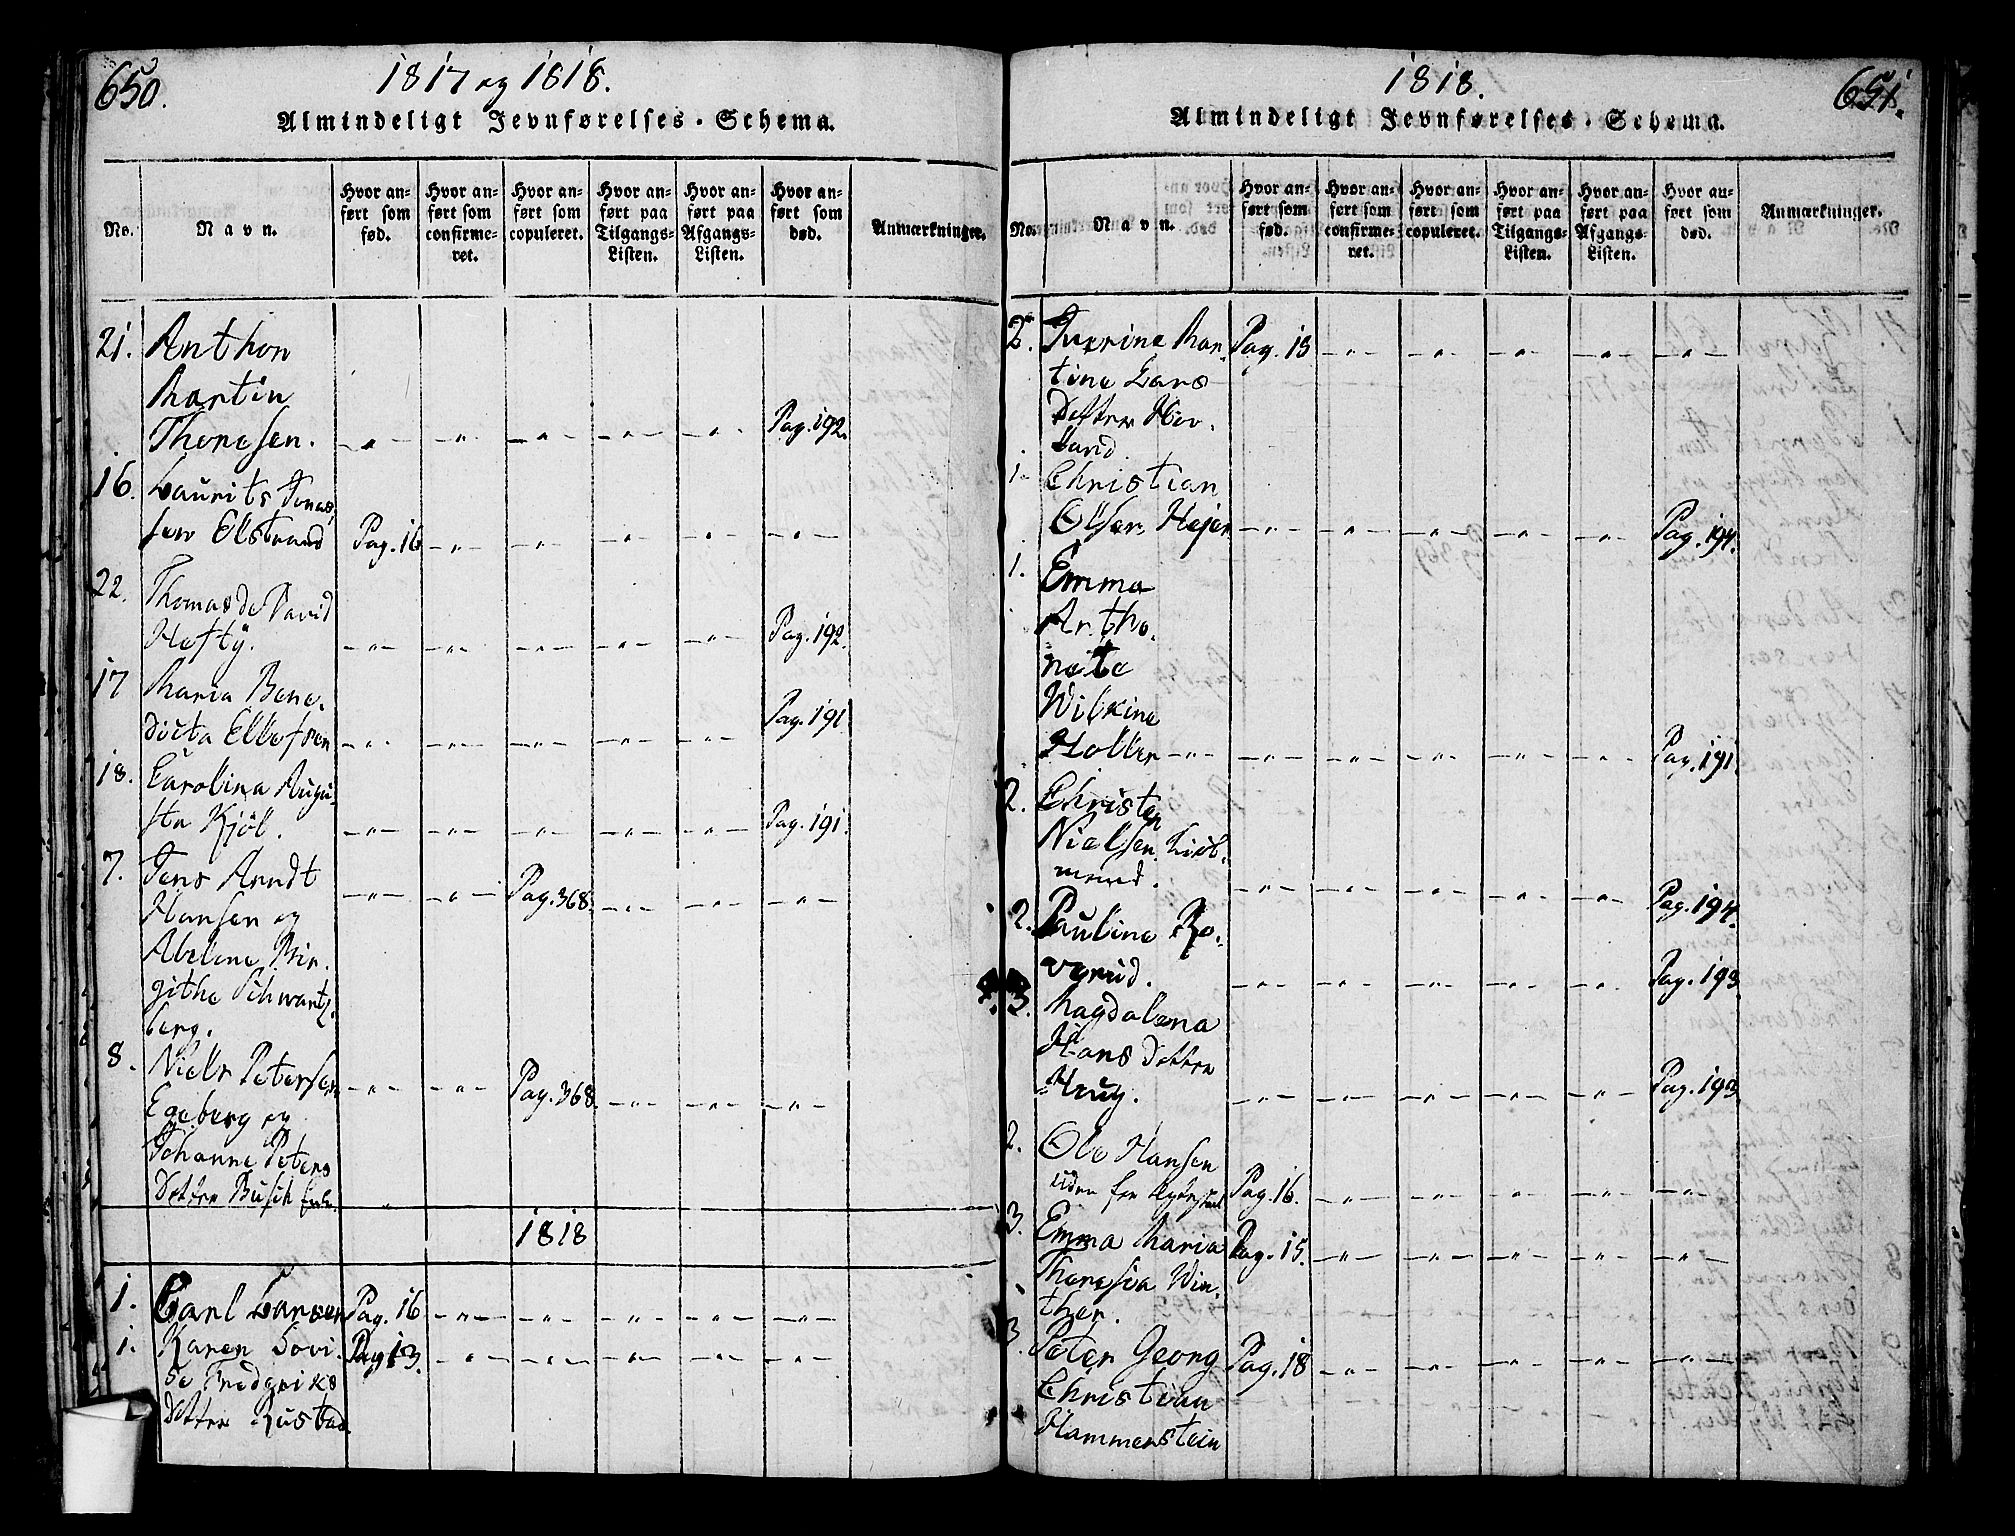 650.
1817 og 1818.
Almindeligt Jevnførelses-Schema.
No.
Navn.
Hvor anført som fød.
Hvor anført som confirmeret.
Hvor anført som copuleret.
Hvor anført paa Tilgangs-Listen.
Hvor anført paa Afgangs-Listen.
Hvor anført som død.
Anmærkninger.
21. Anthon
Martin
Thoresen. Pag. 192.
16. Laurits Jonas
sen Elstrand Pag. 16
22. Thomas de David
Hefty. Pag. 192.
17 Maria Bene-
dicta Ellefsen Pag. 191
18. Carolina Augu-
sta Kjöl. Pag. 191.
7. Jens Arndt
Hansen og Pag. 368.
Abelene Bir-
githe Schwartz-
berg.
8. Niels Petersen Pag. 368.
Egeberg og
Johanne Peters
Detter Busch
1818
1. Carl Larsen Pag. 16
1. Karen Lovi- Pag. 13.
se Fredriks
Detter Rustad.
1818.
651.
Almindeligt Jevnførelses-Schema.
No.
Navn.
Hvor anført som fød.
Hvor anført som confirmeret.
Hvor anført som copuleret.
Hvor anført paa Tilgangs-Listen.
Hvor anført paa Afgangs-Listen.
Hvor anført som død.
Anmærkninger.
2. Mar- Pag. 15
tine Lars
Detter Hov-
land.
1. Christian
Olsen Hejer Pag. 194.
1. Emma
Antho-
nete
Wilkine
Holler Pag. 191
2. Christen
Nielsen
Pag. 194.
2. Pauline Ro-
Pag. 193
3. Magdalena
Hans Detter
Haug. Pag. 193
2. Ole Hansen
Pag. 16.
3. Emma Maria Pag. 15.
Theresia Win-
ther.
3. Peter Georg Pag. 18
Christian
Hammerstein